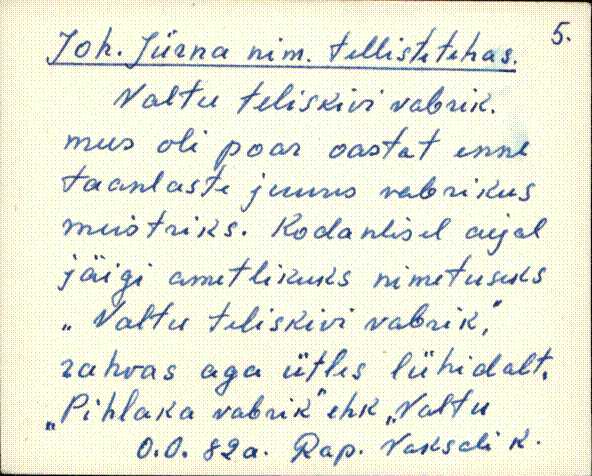 5.
Joh. Jürna nim. tellistetehas.
Valtu teliskivi vabrik.
mus oli poar oastat enne
taanlaste juures vabrikus
meistriks. Kodanlisel aejal
jäigi ametlikuks nimetuseks
„Valtu teliskivi vabrik,"
rahvas aga ütles lühidalt.
„Pihlaka vabrik" ehk „Valtu
O.O. 82a. Rap. Vaksali k.